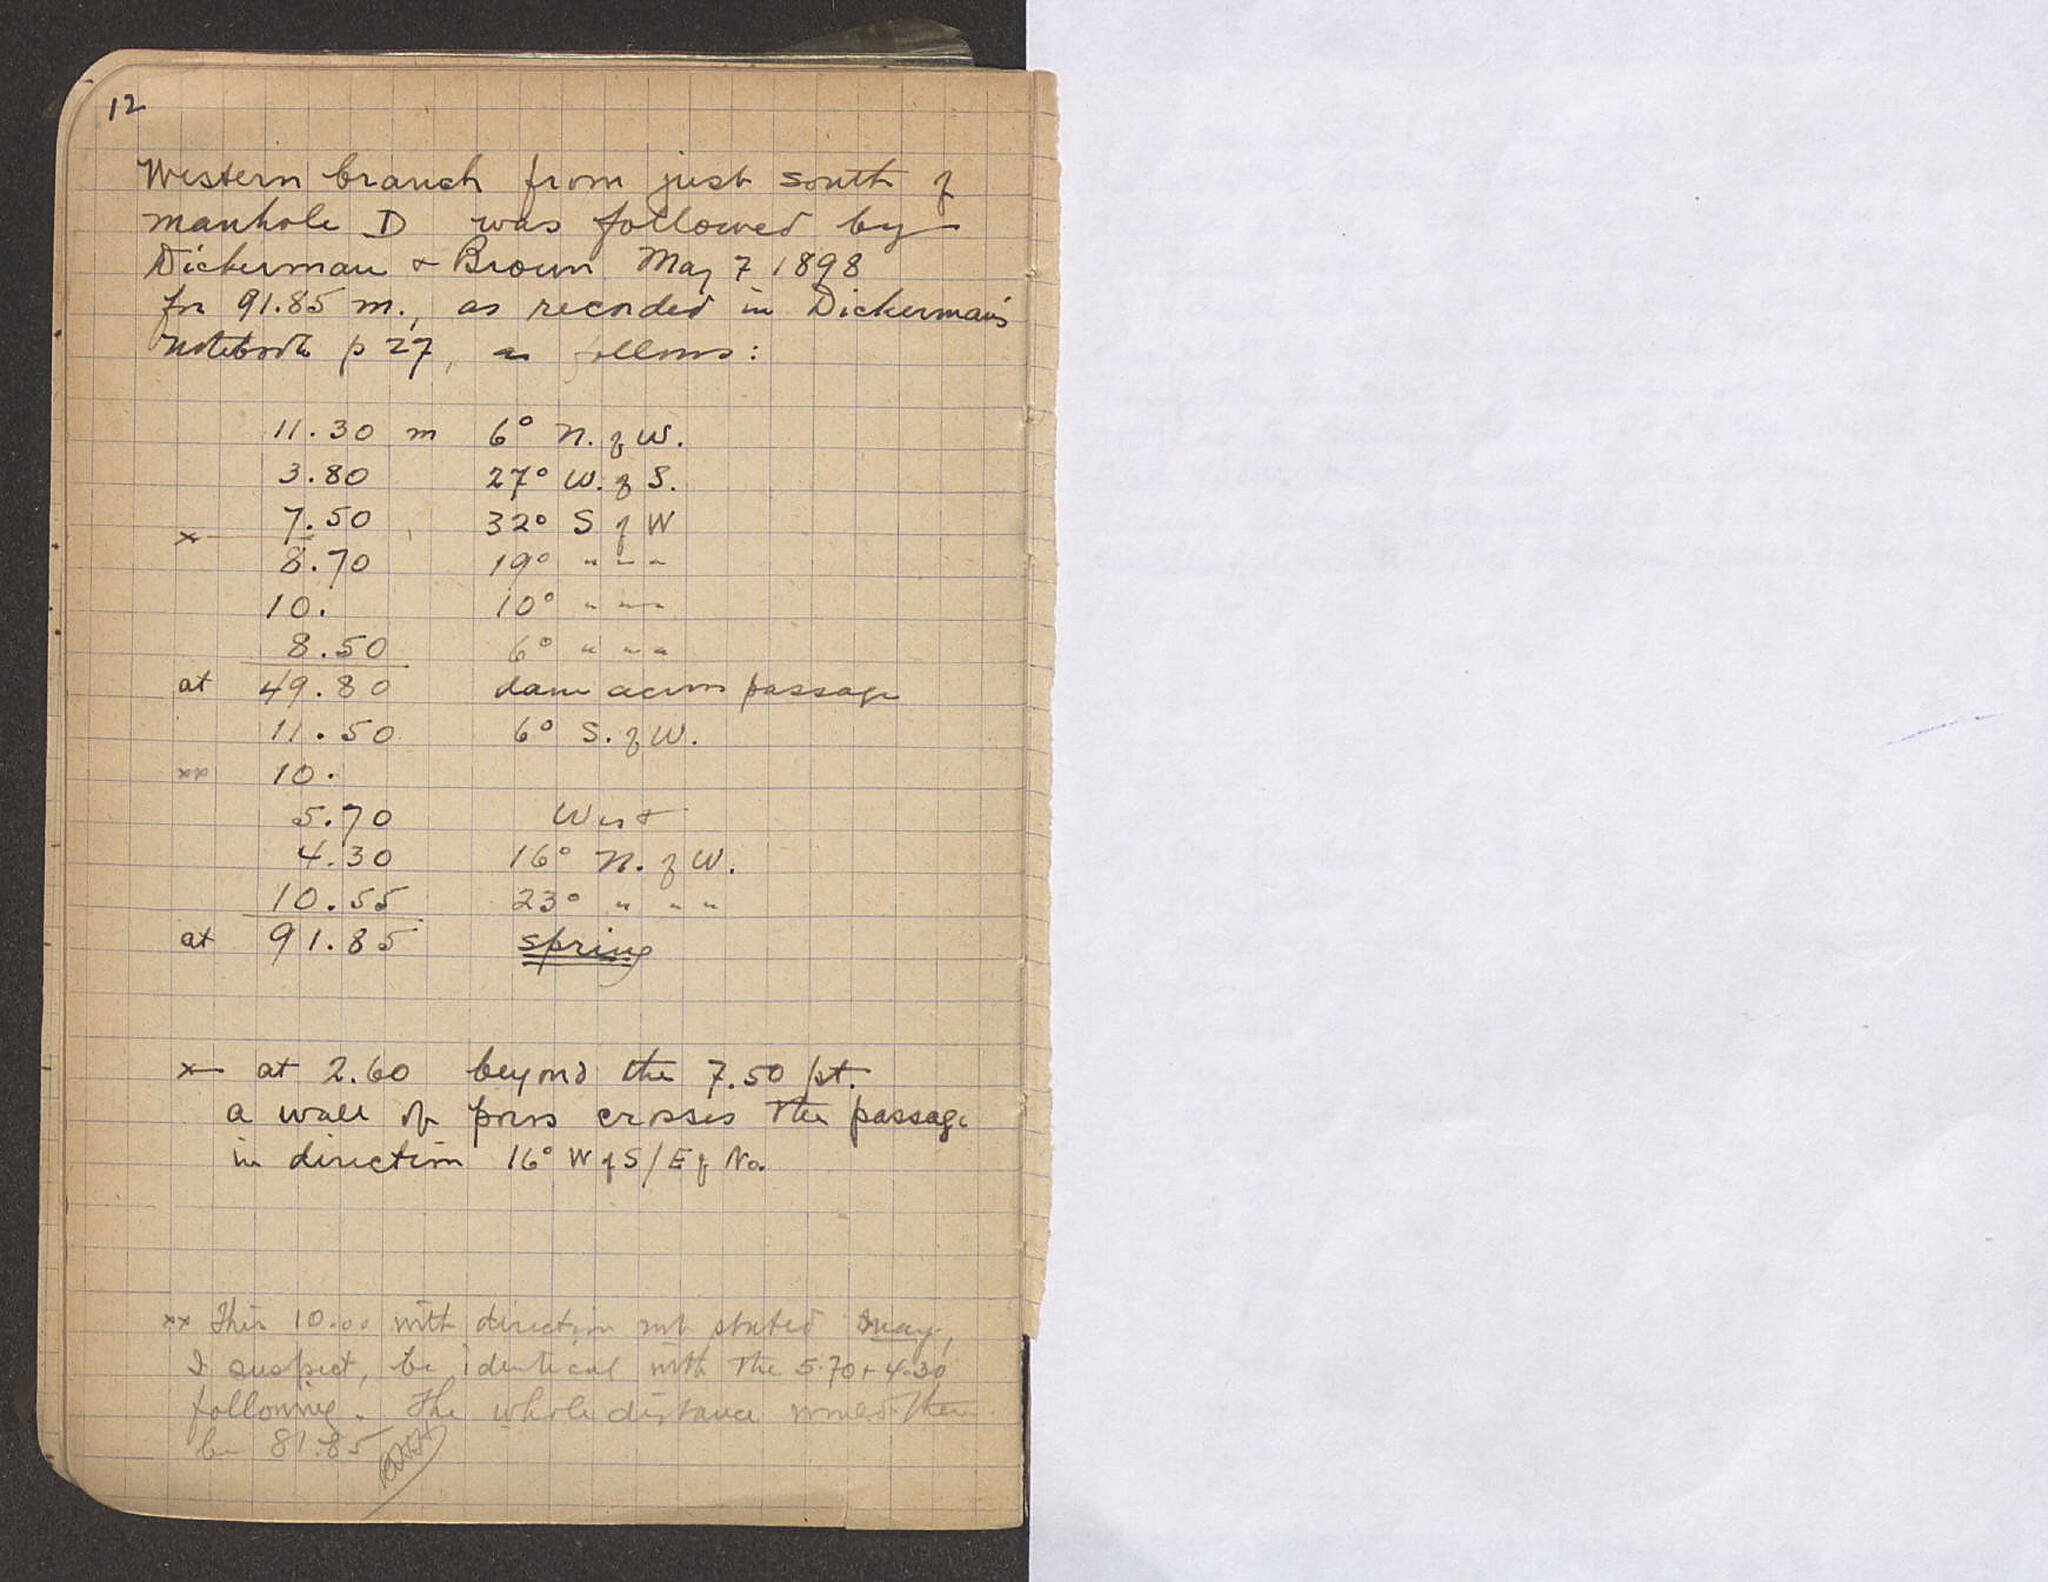 12
Western branch from just south of
manhole D was followed by
Dickerman + Brown May 7 1898
for 91.85 m., as recorded in Dickerman's
notebook p 27, as follows:
11.30 m 6° N. of W.
3.80 27° W. of S.
x 7.50 32° S of W
8.70 19° " " "
10. 10° " " "
8.50 6° " " "
at 49.80 dam across passage
11.50 6° S. of W.
xx 10.
5.70 West
4.30 16° N. of W.
10.55 23° " " "
at 91.85 spring
x at 2.60 beyond the 7.50 pt.
a wall of poros crosses the passage
in direction 16° W of S/E of No.
xx This 10.00 with direction not stated may,
I suspect, be identical with the 5.70 + 4.30
following. The whole distance would then
be 81.85